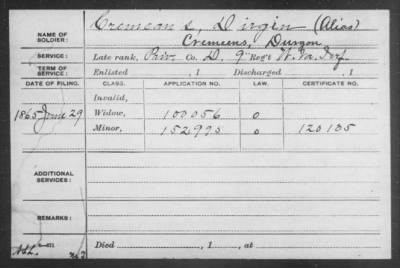 NAME OF SOLDIER: Cremeans, Dirgin (Alias)
Cremeens, Durgon
SERVICE: Late rank, Priv. Co. D, 9" Reg't W. Va. Inf.
TERM OF SERVICE: Enlisted , 1 Discharged , 1
DATE OF FILING. CLASS. APPLICATION NO. LAW. CERTIFICATE NO.
Invalid,
1865 June 29 Widow, 100056 o
Minor, 152995 o 120105
ADDITIONAL SERVICES:
REMARKS:
Died , 1 , at